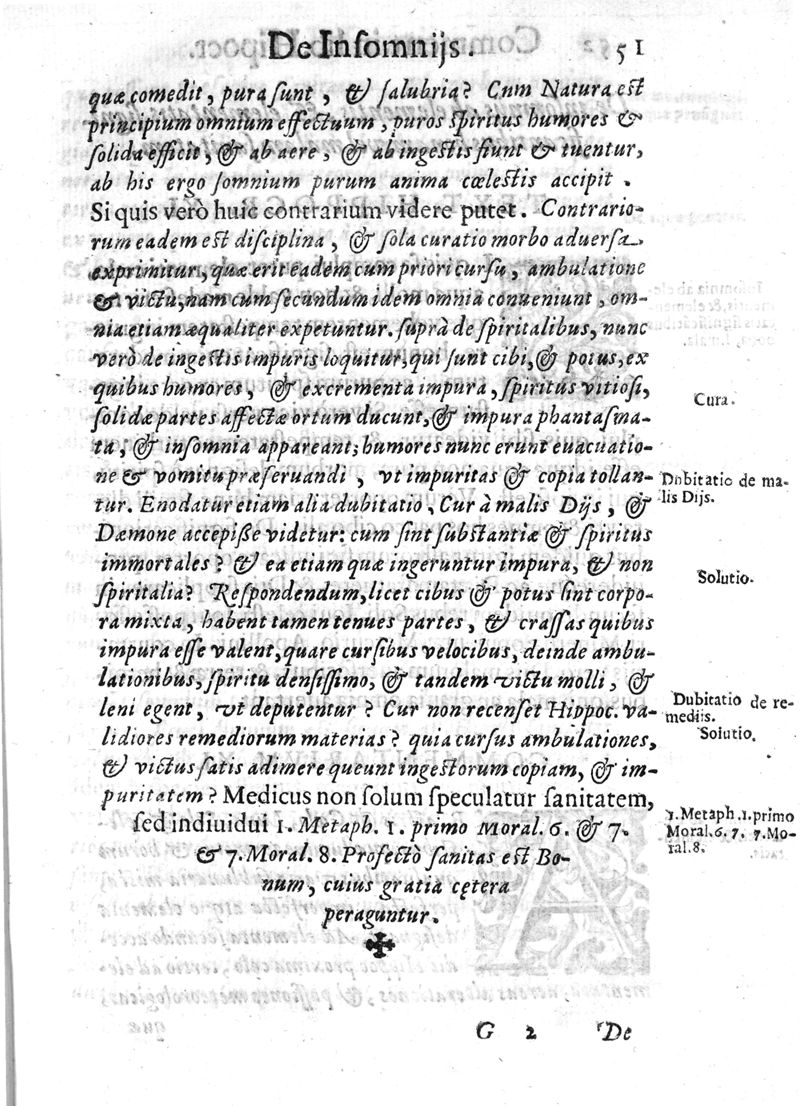 De Insomnijs. 51
quæ comedit, pura sunt, & salubria? Cum Natura est
principium omnium effectuum, puros spiritus humores &
solida efficit, & ab aere, & ab ingestis fiunt & tuentur,
ab his ergo somnium purum anima cœlestis accipit.
Si quis verò huic contrarium videre putet. Contrario-
rum eadem est disciplina, & sola curatio morbo aduersa
exprimitur, quæ erit eadem cum priori cursu, ambulatione
& victu, nam cum secundum idem omnia conueniunt, om-
nia etiam æqualiter expetuntur. suprà de spiritalibus, nunc
verò de ingestis impuris loquitur, qui sunt cibi, & potus, ex
quibus humores, & excrementa impura, spiritus vitiosi,
solidæ partes affectæ ortum ducunt, & impura phantasma-
ta, & insomnia appareant; humores nunc erunt euacuatio-
ne & vomitu præseruandi, vt impuritas & copia tollan-
tur. Enodatur etiam alia dubitatio, Cur à malis Dijs, &
Dæmone accepisse videtur: cum sint substantiæ & spiritus
immortales? & ea etiam quæ ingeruntur impura, & non
spiritalia? Respondendum, licet cibus & potus sint corpo-
ra mixta, habent tamen tenues partes, & crassas quibus
impura esse valent, quare cursibus velocibus, deinde ambu-
lationibus, spiritu densissimo, & tandem victu molli, &
leni egent, vt deputentur? Cur non recenset Hippoc. va-
lidiores remediorum materias? quia cursus ambulationes,
& victus satis adimere queunt ingestorum copiam, & im-
puritatem? Medicus non solum speculatur sanitatem,
sed indiuidui 1. Metaph. 1. primo Moral. 6. & 7.
& 7. Moral. 8. Profectò sanitas est Bo-
num, cuius gratia cętera
peraguntur.
Cura.
Dubitatio de ma-
lis Dijs.
Solutio.
Dubitatio de re-
mediis.
Solutio.
1. Metaph .1. primo
Moral. 6. 7. 7. Mo-
ral. 8.
G 2 De